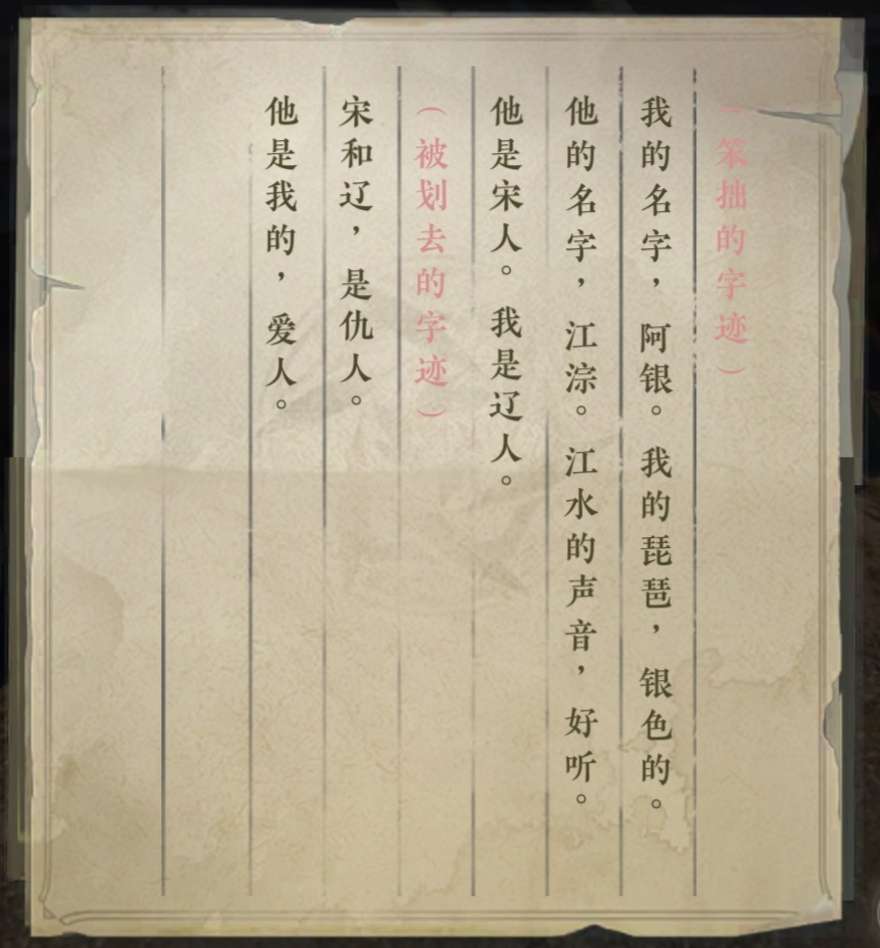 （笨拙的字迹）
我的名字，阿银。我的琵琶，银色的。
他的名字，江淙。江水的声音，好听。
他是宋人。我是辽人。
（被划去的字迹）
宋和辽，是仇人。
他是我的，爱人。